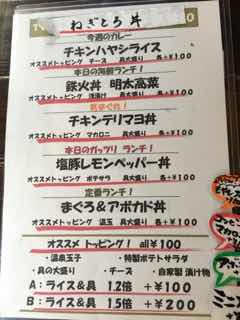 ねぎとろ丼
今週のカレー
チキンハヤシライス
オススメトッピング チーズ 具大盛り 各+¥100
本日の海鮮ランチ!
鉄火丼 明太高菜
オススメトッピング 浅漬け 具大盛り 各+¥100
気まぐれ!
チキンテリマヨ丼
オススメトッピング マカロニ 具大盛り 各+¥100
本日のガッツリ ランチ!
塩豚レモンペッパー丼
オススメトッピング ポテサラ 具大盛り 各+¥100
定番ランチ!
まぐろ&アボカド丼
オススメトッピング 温玉 具大盛り 各+¥100
オススメ トッピング! all¥100
・温泉玉子 ・特製ポテトサラダ
・具の大盛り ・チーズ ・自家製 漬け物
A:ライス&具 1.2倍 +¥100
B:ライス&具 1.5倍 +¥200